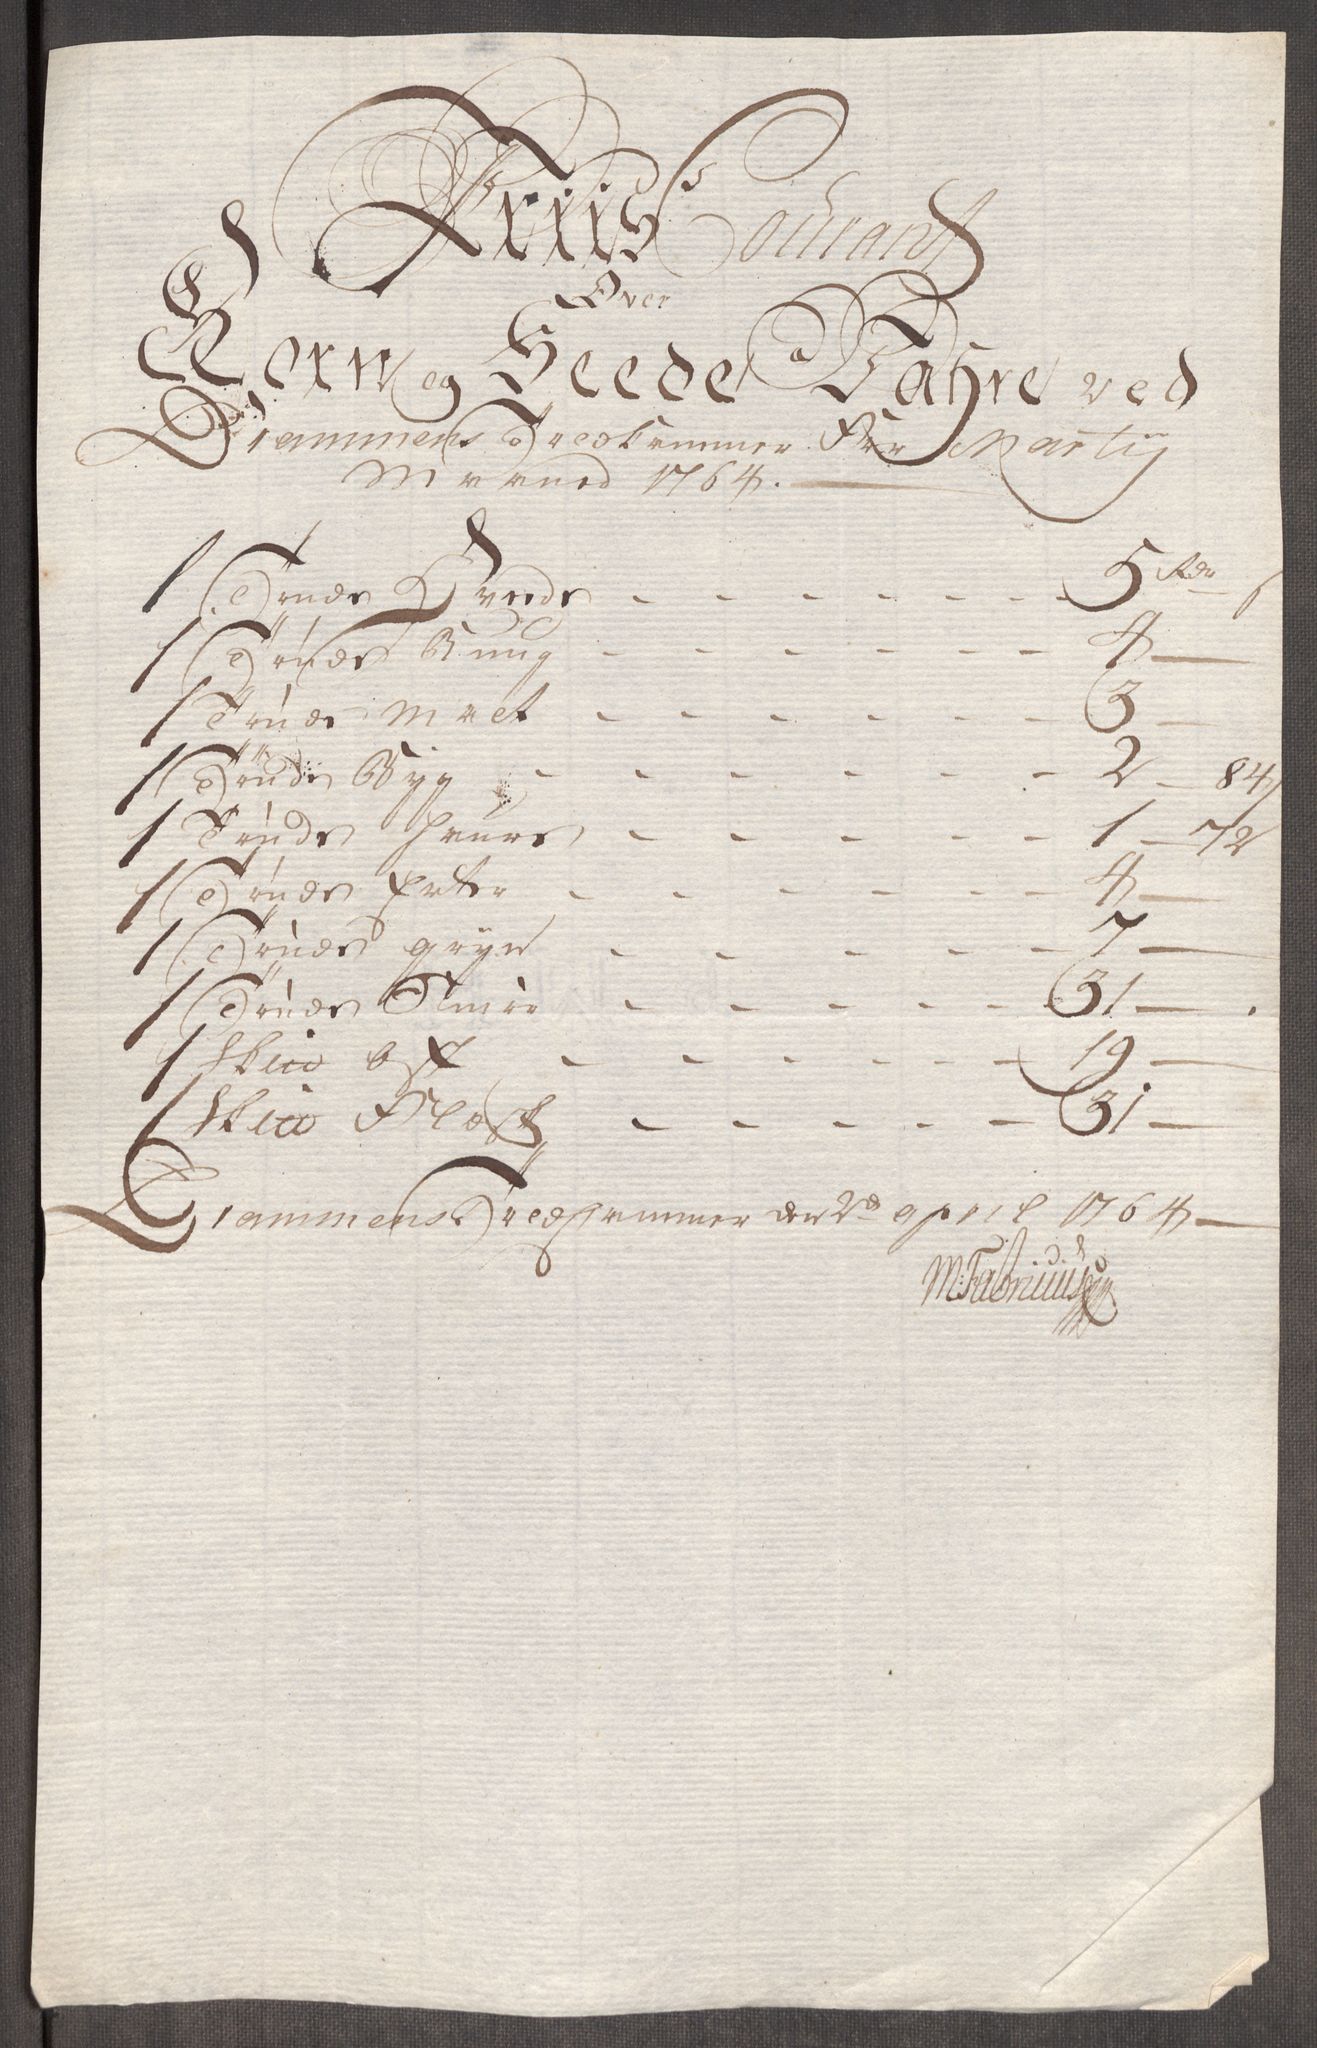 Priis Courant
Over
Korn og Feede Vahre ved
Drammens Toldkammer For Martij
Maaned 1764.
1 Tønde Hveede - - - - - - - - 5 Rdr
1 Tønde Rug - - - - - - - 4 —
1 Tønde Malt - - - - - - - 3 —
1 Tønde Byg - - - - - - - 2 - 84
1 Tønde Haure - - - - - - 1 - 72
1 Tønde Erter - - - - - - - 4 —
1 Tønde gryn - - - - - - 7 —
1 Tønde Smør - - - - - - 31 —
1 Sk℔ ost - - - - - - - 19 —
1 Sk℔ Flesk - - - - - - 31 —
Drammens Toldkammer den 2d april 1764 —
M: Fabritius